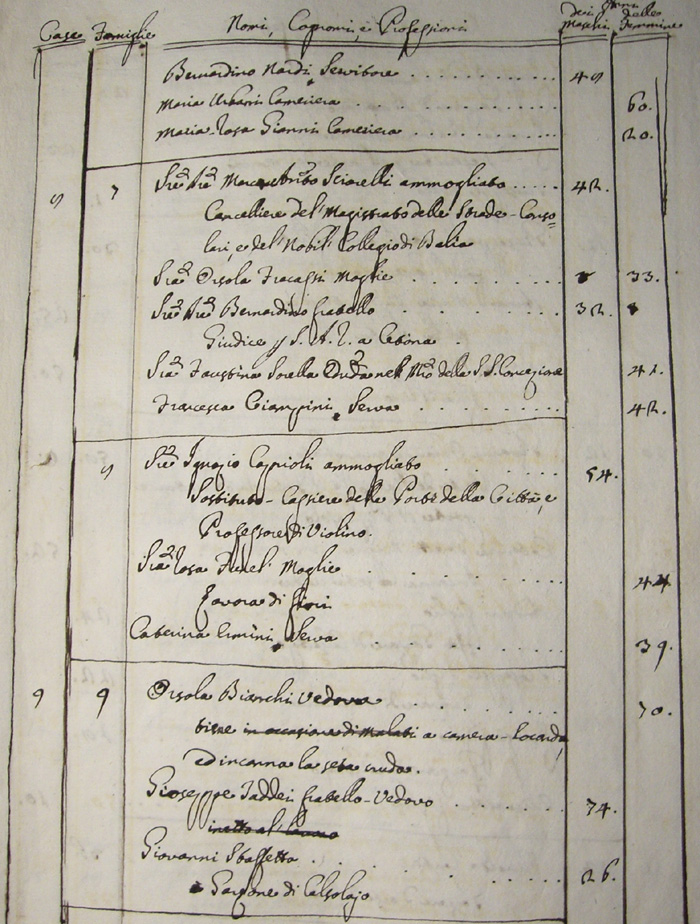 Case Famiglie Nomi, Cognomi, e Professioni Anni dei Maschi, delle Femmine
Bernardino Nardi Servitore 49
Maria Urbani Cameriera 60.
Maria-Rosa Gianni Cameriera 20.
7 ammogliato 42.
Cancelliere del Magistrato delle Strade-Conso
lari, e del Nobil Collegio di Balia
Orsola Fracassi Moglie 33.
Bernardino fratello 32.
Giudice S. A. R. a
Faustina Sorella nel della S.S. Concezione 41.
Francesca Ciampini, Serva 42.
Ignazio Caprioli ammogliato 54.
Sostituto-Cassiere delle Porte della Città, e
Professore di Violino.
Rosa Moglie 44
Lavora di fiori
Caterina Serva 39.
9 9 Orsola Bianchi Vedova 70.
tiene in occasione di a camera-locanda,
ed incanna la seta cruda.
Gioseppe Taddei fratello-Vedovo 74.
inetto al lavoro
Giovanni Sbaffetta 26.
Garzone di Calzolajo